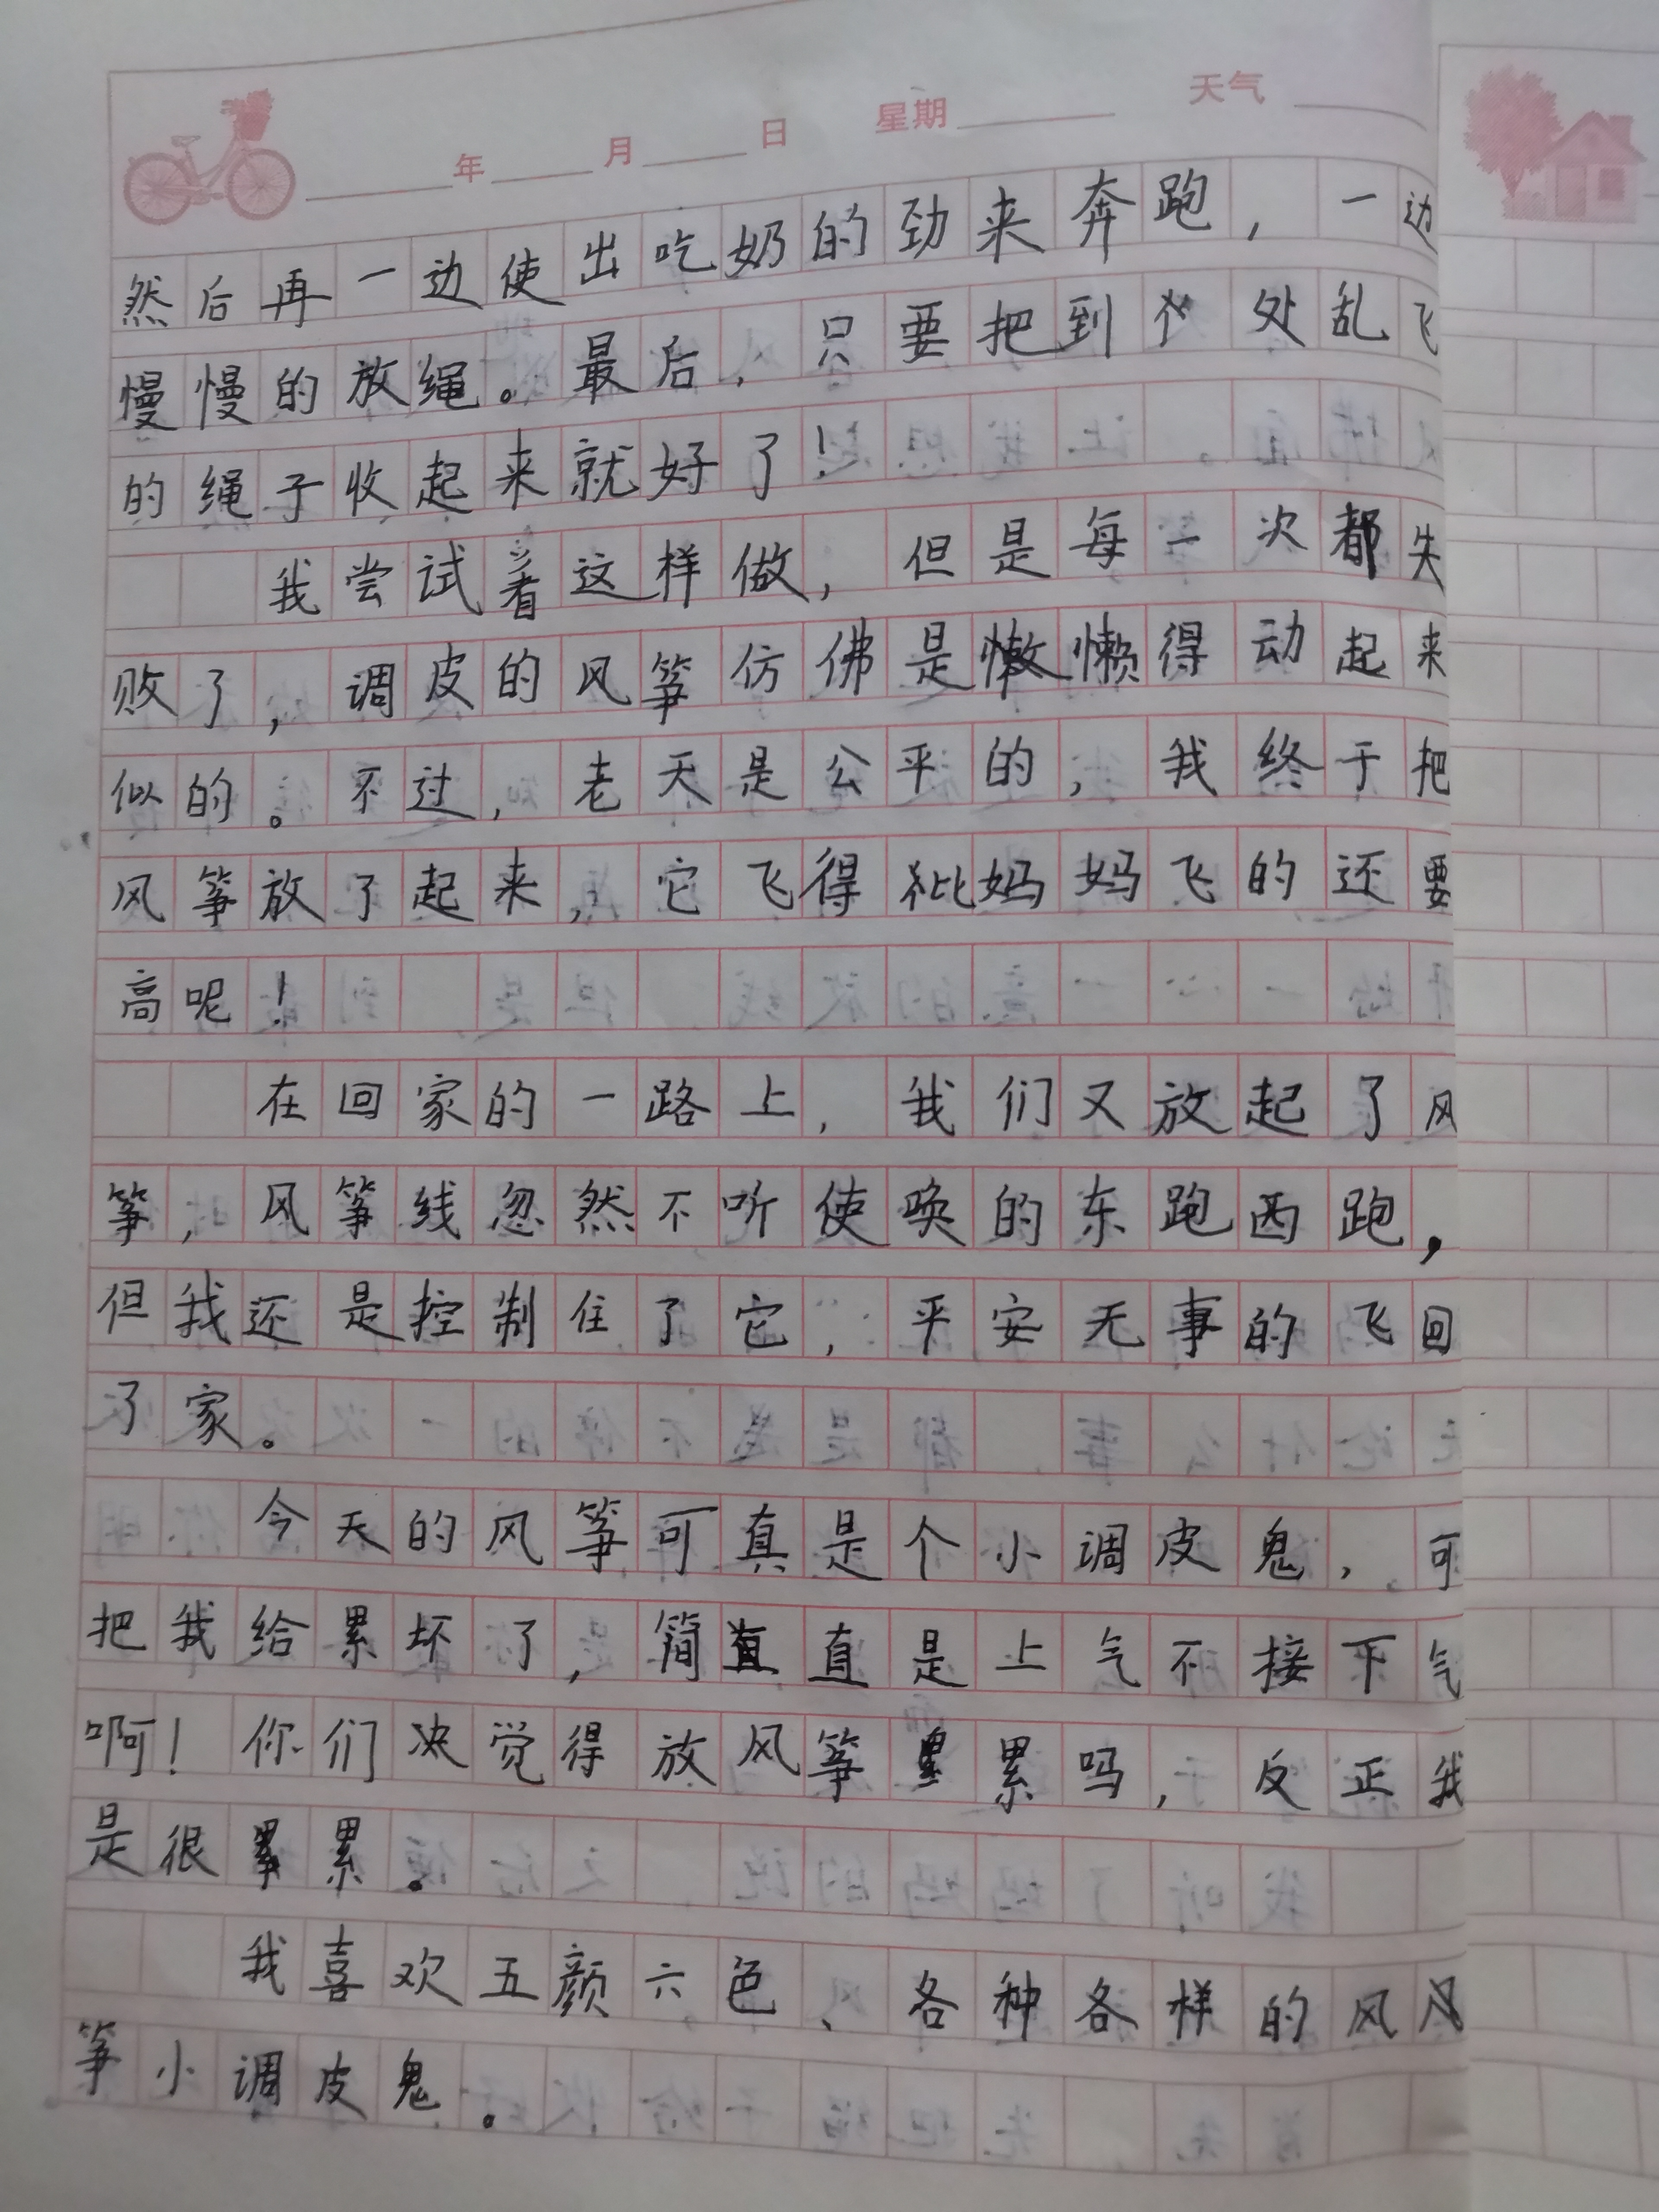 年 月 日 星期 天气
然后再一边使出吃奶的劲来奔跑，一边
慢慢的放绳。最后，只要把到处乱飞
的绳子收起来就好了！
我尝试着这样做，但是每一次都失
败了，调皮的风筝仿佛是懒得动起来
似的。不过，老天是公平的，我终于把
风筝放了起来，它飞得比妈妈飞的还要
高呢！
在回家的一路上，我们又放起了风
筝，风筝线忽然不听使唤的东跑西跑，
但我还是控制住了它，平安无事的飞回
了家。
今天的风筝可真是个小调皮鬼，可
把我给累坏了，简直是上气不接下气
啊！你们决觉得放风筝累吗，反正我
是很累。
我喜欢五颜六色、各种各样的风
筝小调皮鬼。